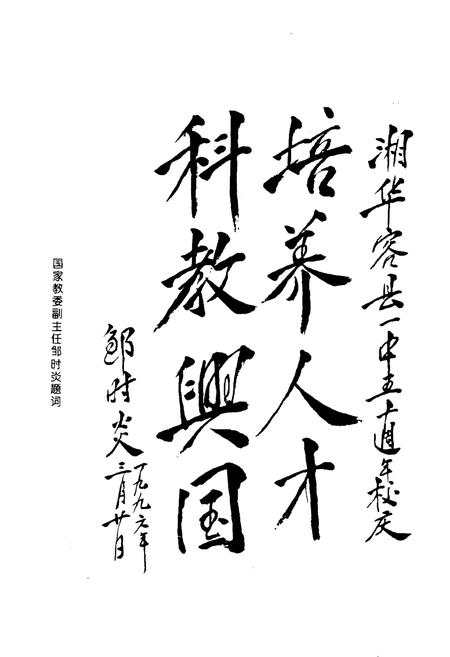 湘华容县一中五十週年校庆
培养人才
科教興国
邹时炎
一九九六年
三月廿日
国家教委副主任邹时炎题词